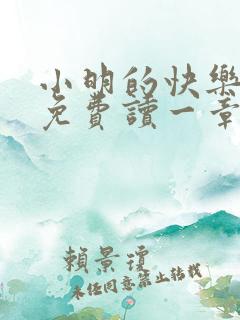 小明的快樂
免費讀一章
賴景瓊
未經同意禁止轉載